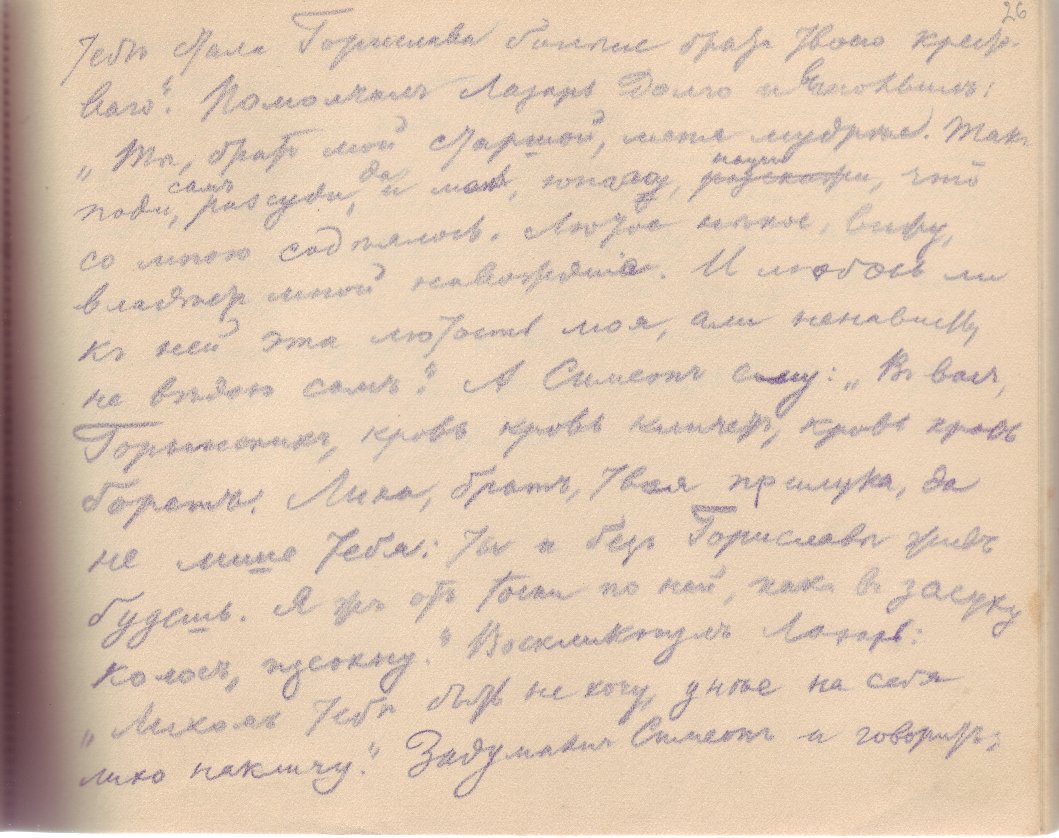 26
Тебѣ стала Горислава больше брата твоего крест-
ваго". Помолчалъ Лазарь долго и вымолвилъ:
„Ты, братъ мой старшой, меня мудрѣе. Такъ
поди, самъ разсуди, да и мнѣ, юнаку, поумъ, что
со мною содѣялось. Лютое нѣкое, вижу,
владѣетъ мной наважденіе. И любовь ли
къ ней эта лютость моя, али ненависть,
не вѣдаю самъ". А Симеонъ ему: „Въ васъ,
Горынскихъ, кровь кровь кличетъ, кровь кровь
боретъ. Лиха, братъ, твоя прилука, да
не мине тебя: ты и безъ Гориславы живъ
будешь. Я жъ отъ тоски по ней, какъ въ засуху
колосъ, изсохну." Воскликнулъ Лазарь:
„Лихомъ тебѣ быть не хочу, унтѣе на себя
лихо накличу." Задумался Симеонъ и говоритъ: